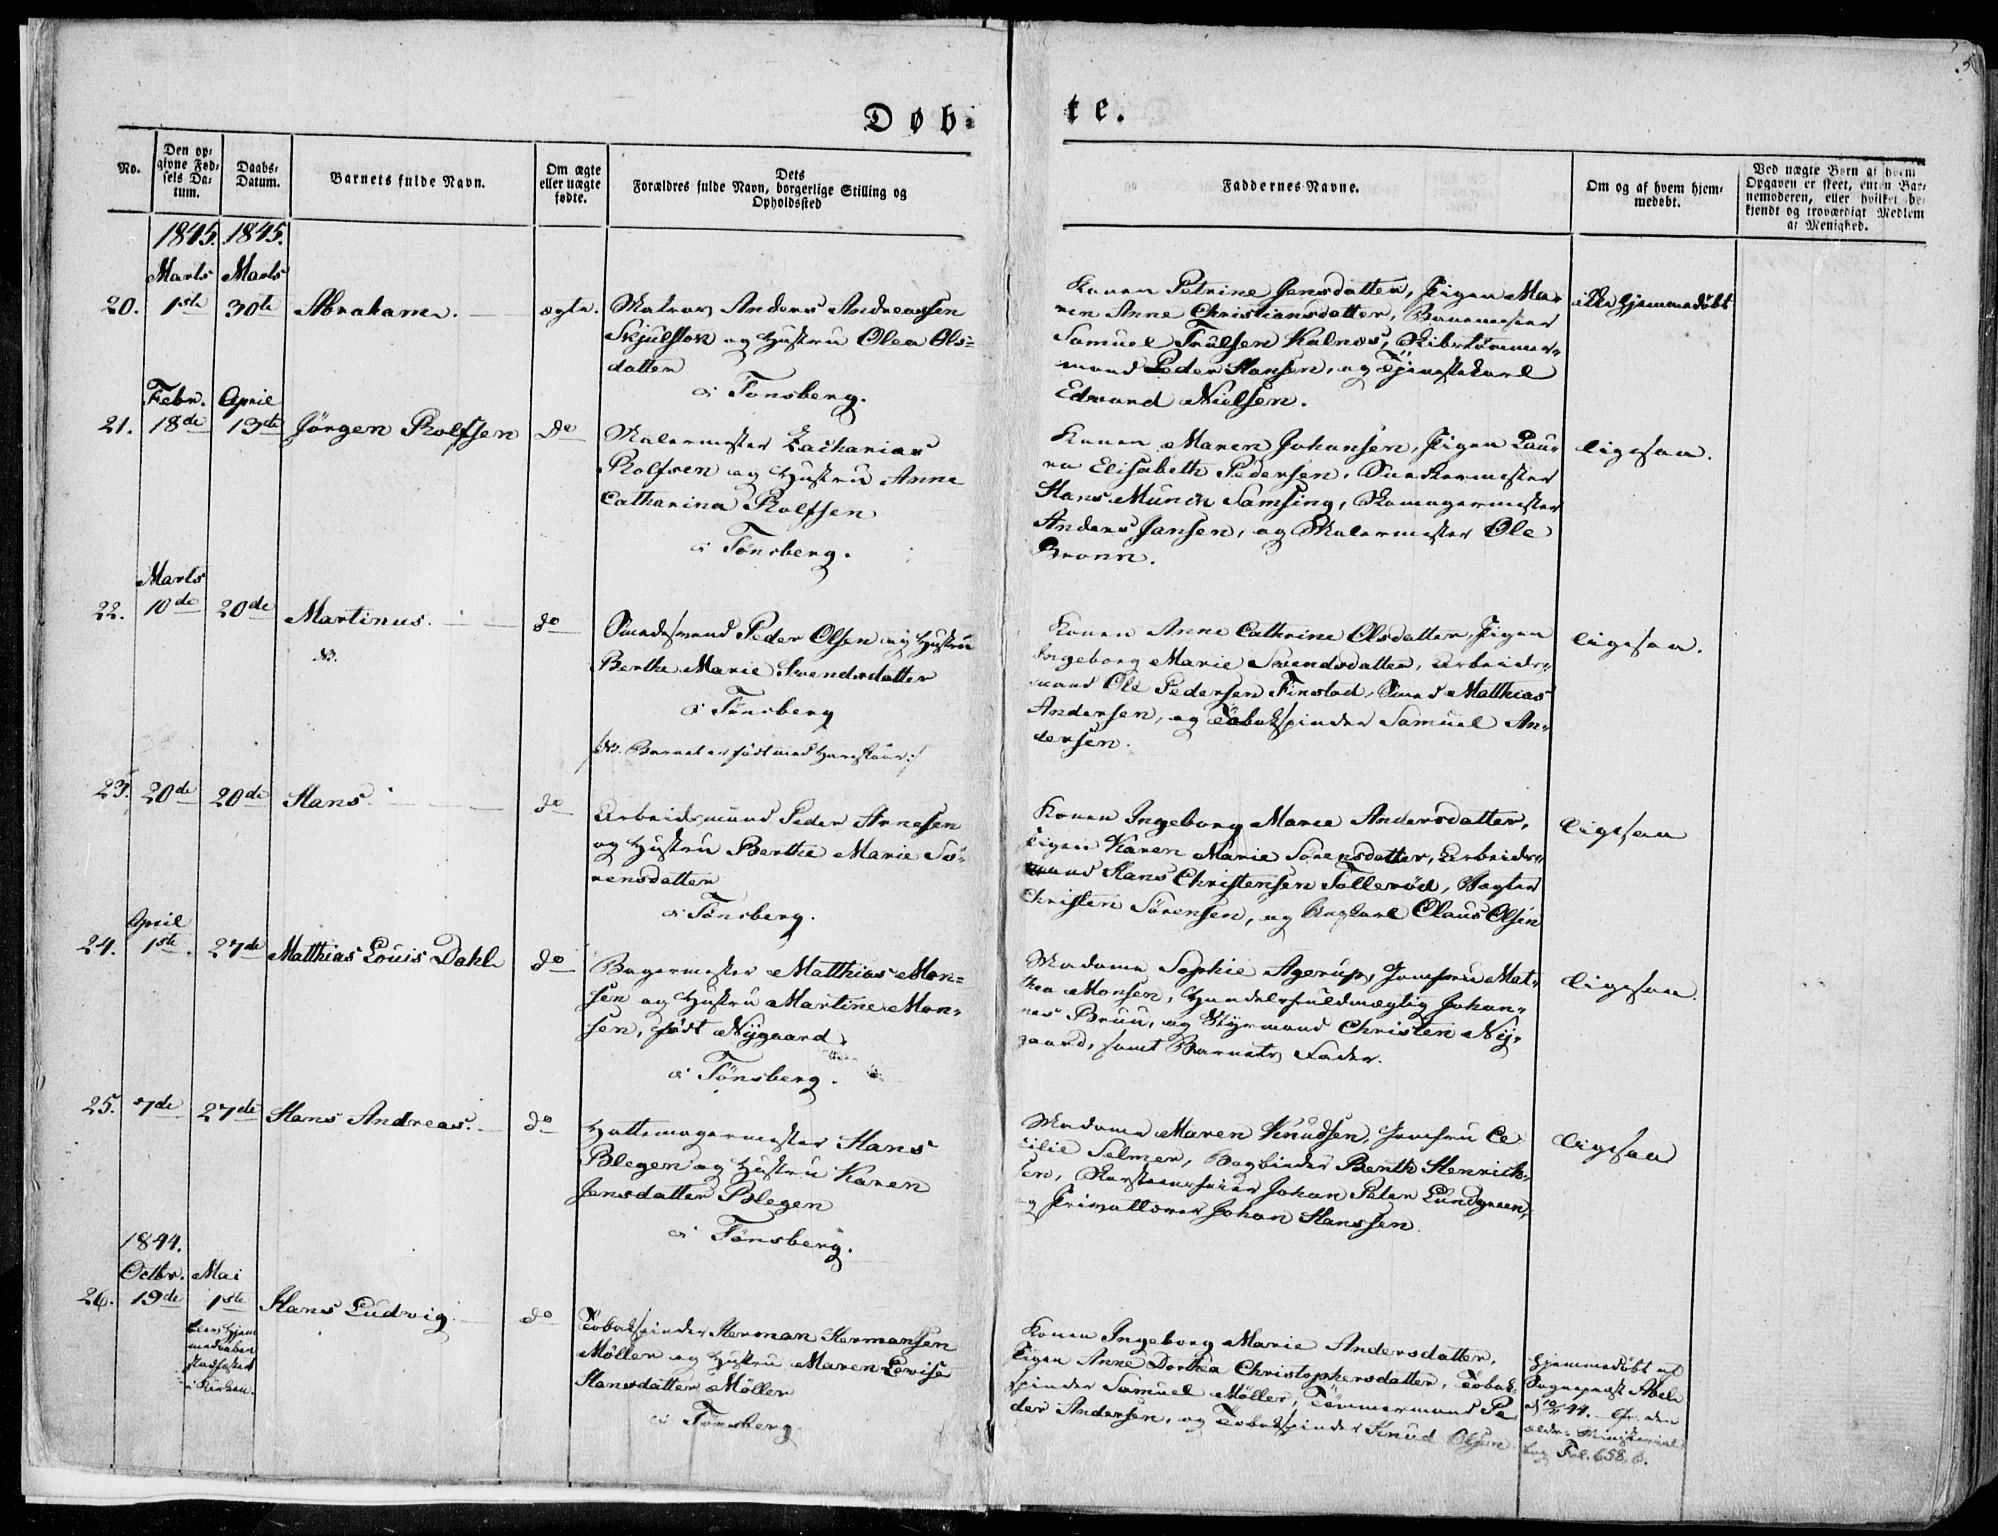 Døb-
te.
5
No.
Den op-
givne Fød-
sels Da-
tum.
Daabs-
Datum.
Barnets fulde Navn.
Om ægte
eller uægte
fødte.
Dets
Forældres fulde Navn, borgerlige Stilling og
Opholdssted
Faddernes Navne.
Om og af hvem hjem-
medøbt.
Ved uægte Børn af hvem
Opgaven er skeet, enten Bar-
nemoderen, eller hvilket be-
kjendt og troværdigt Medlem
af Menighed.
1845. 1845.
Marts Marts
20. 1ste 30te Abraham. ægte.
Matros Anders Andreassen
Skjulstok og Hustru Olea Ols-
datter
i Tønsberg.
Konen Petrine Jensdatter, Pigen Ma-
ren Anne Christiansdatter,
Samuel Trulsen Kalnæs, Skibstømmer-
mand Peder Hansen, og Tjenestekarl
Edvard Nielsen.
ikke hjemmedøbt
Febr. April
21. 18de 13de Jørgen Rolfsen do
Malermester Zacharias
Rolfsen og Hustru Anne
Catharina Rolfsen
i Tønsberg.
Konen Maren Johansen, Pigen Lau-
ra Elisabeth Pedersen, Snedkermester
Hans Munch Samsing, Skomagermester
Anders Jansen, og Malermester Ole
Bronn.
ligesaa.
Marts
22. 10de 20de Martinus. do
NB.
Smedsvend Peder Olsen og Hustru
Berthe Marie Svendsdatter
i Tønsberg
/NB. Barnet er født med Hareskaar:/
Konen Anne Cathrine Olsdatter, Pigen
Ingeborg Marie Svendsdatter, Arbeids-
mand Ole Pedersen Finstad, Smed Matthias
Andersen, og Tobakspinder Samuel An-
dersen.
ligesaa.
23. 20de 20de Hans. do
Arbeidsmand Peder Arnesen
og Hustru Berthe Marie Sø-
rensdatter
i Tønsberg.
Konen Ingeborg Marie Andersdatter,
Pigen Karen Marie Sørensdatter, Arbeids-
mand Hans Christensen Tollerød, Vægter
Christen Sørensen, og Claus Olsen
ligesaa
April
24. 1ste. 27de Matthias Louis Dahl do
Bagermester Matthias Mon-
sen og Hustru Martine Mon-
sen, født Nygaard.
i Tønsberg.
Madame Sophie Agerup, Jomfru Mat-
thea Monsen, Handelsfuldmægtig Johan-
nes Bruu, og Styrmand Christen Ny-
gaard, samt Barnets Fader.
ligesaa.
25. 7de 27de Hans Andreas. do
Hattemagermester Hans
Blegen og Hustru Karen
Jensdatter Blegen
i Tønsberg.
Madame Maren Knudsen, Jomfru Ce-
cilie Selmer, Bogbinder Berth Henrik-
sen, Skorsteensfeier Johan Peter Lundgreen,
og Johan Hanssen.
ligesaa
1844.
Octbr. Mai
26. 19de 1ste Hans Ludvig. do
hjem
medaaben
stadfæstet
i Kirken.
Tobakspinder Herman Hermansen
Møller og Hustru Maren Lovise
Hansdatter Møller
i Tønsberg.
Konen Ingeborg Marie Andersdatter,
Pigen Anne Dorthea Christophersdatter, Tobak-
spinder Samuel Møller, Tømmermand Pe-
der Andersen, og Tobakspinder Knud Olsen
Hjemmedøbt af
Sognepræst Abel
44. Cfr. den
ældre Ministerial-
bog Fol. 658, 6.